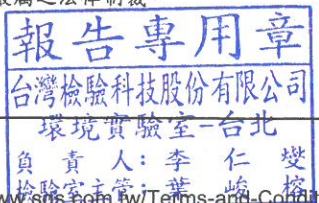 嚴厲之法律制裁
報告專用章
台灣檢驗科技股份有限公司
環境實驗室-台北
負責人：李仁燮
檢驗室主管：葉峻榕
www.sgs.com.tw/Terms-and-Condit